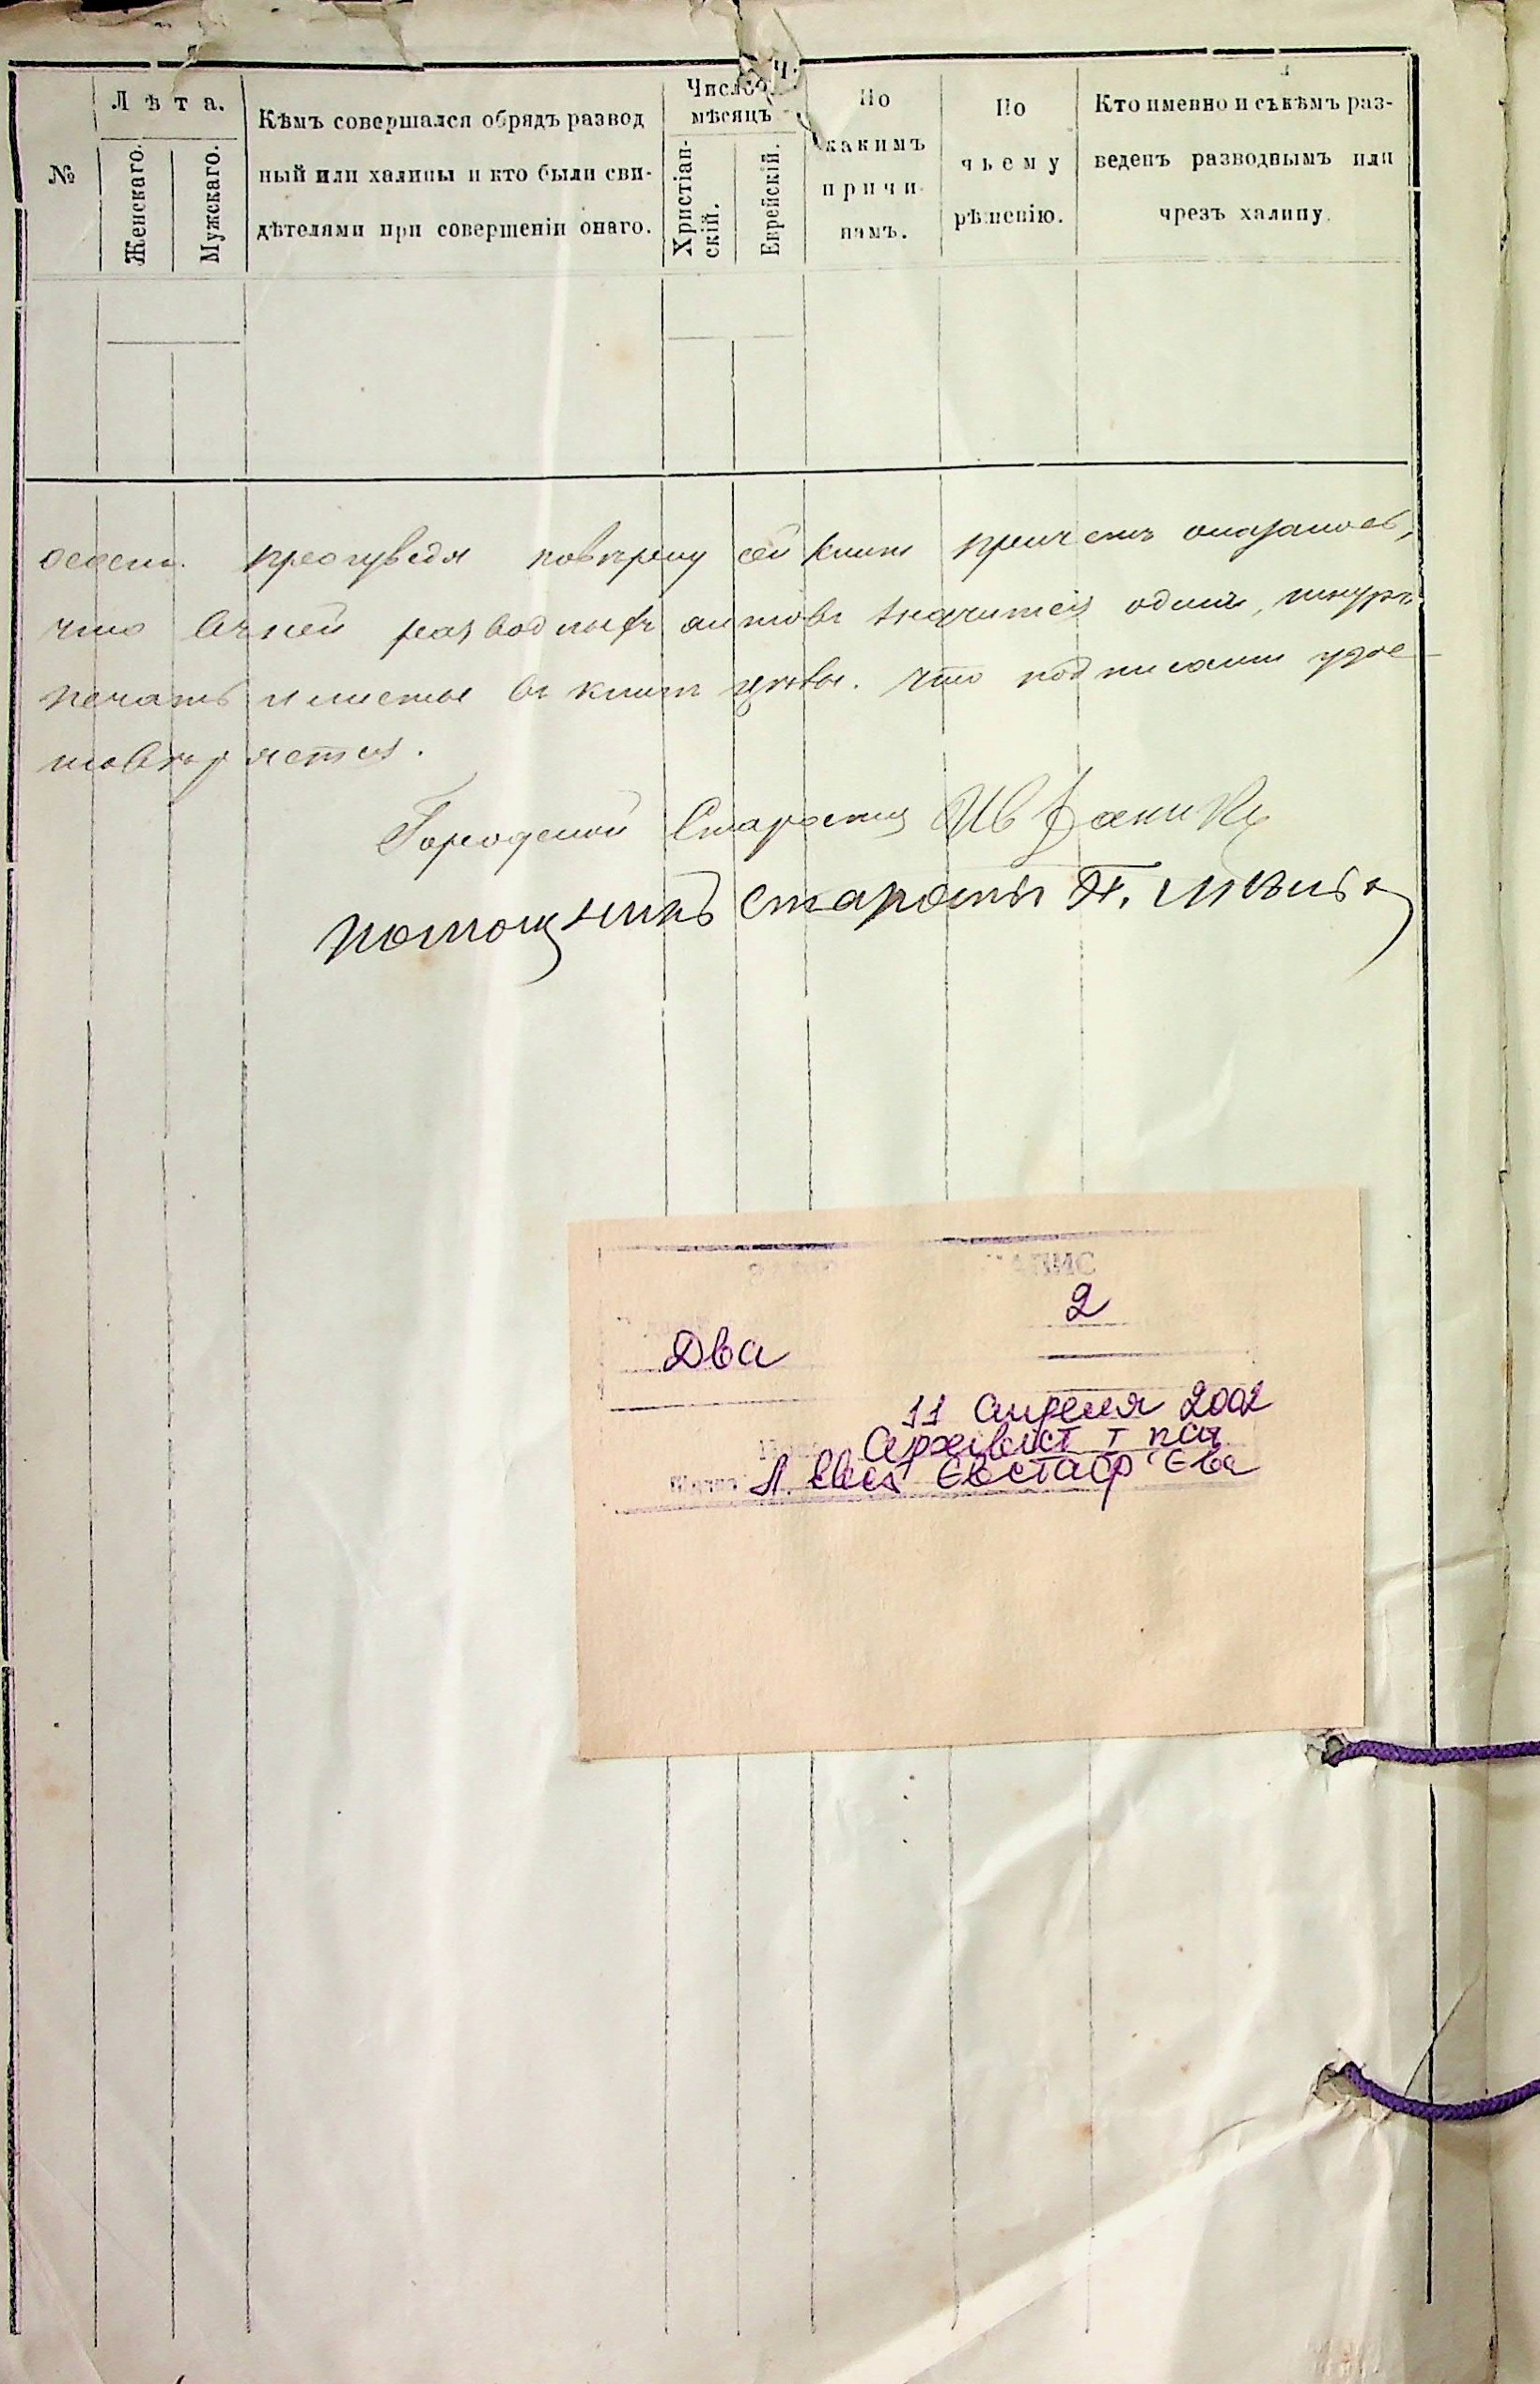 №
Лѣта.
Женскаго.
Мужскаго.
Кѣмъ совершался обрядъ развод
ный или халицы и кто были сви-
дѣтелями при совершеніи онаго.
Число и
мѣсяцъ
Христіан-
скій.
Еврейскій.
По
какимъ
причи-
намъ.
По
чьему
рѣшенію.
Кто именно и съ кѣмъ раз-
веденъ разводнымъ или
чрезъ халицу.
повѣрку сей книги причемъ оказалось,
что въ ней разводныхъ актовъ значится одинъ, шнуръ
печать и листы въ книгѣ цѣлы. что подписями удос
товѣряется.
Городской Староста
Помощникъ Старосты П.
2
Два
11 апреля 2002
Архівіст І кат
Євстаф'єва